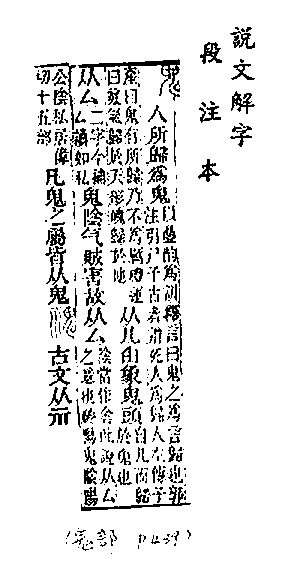 說文解字
段注本
鬼 人所歸爲鬼 以曡韵爲訓釋言曰鬼之爲言歸也郭注引尸子古者謂死人爲歸人左傳子
產曰鬼有所歸乃不爲厲禮運曰䰟氣歸於天形魄歸於地 从儿甶象鬼頭 自儿而歸於鬼也
从厶 二字今補厶讀如私 鬼陰气賊害故从厶 陰當作侌此說从厶之意也神陽鬼陰陽
公陰私居偉切十五部 凡鬼之屬皆从鬼 古文从示
(鬼部 P439)